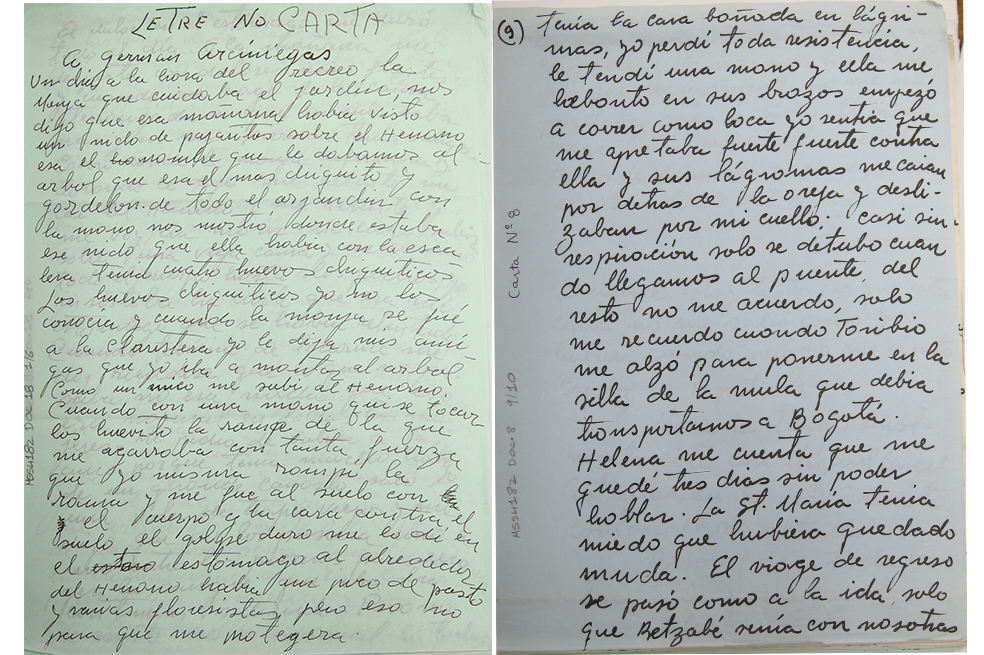 LETRE No CARTA
A german Arciniegas
Un dia a la hora del recreo la
Monja que cuidaba el jardin nos
dijo que esa mañana habia visto
un nido de pajaritos sobre el Henano
esa el nombre que le dabamos al
arbol que era el mas chiquito y
gordelon de todo el arjandin con
la mono nos mostró donde estaba
ese nido que ella habia con la esca
lera tenia cuatro huevos chiquiticos
Los huevos chiquiticos yo no los
conocia y cuando la monja se fué
a la yo le dija mis ami
gas que yo iba a montar al arbol
Como un mico me subi al Henano.
Cuando con una mono quise tocar
los huevito la rampe de la que
me agarraba con tanta fuerza
que yo misma rompi la
rama y me fue al suelo con
el cuerpo a la cara contra el
suelo el golpe duro me lo di en
el estomago al abrededor
del Henano habia un poco de pasto
y varias floresitas pero eso no
para que me protegera.
MSSM182 DOC 18 1/6
(9) tenia la cara bañada en lágri-
mas, yo perdí toda resistencia,
le tendí una mono y ella me
lebonto en sus brazos empezó
a correr como loca yo sentia que
me apretaba fuerte fuerte contra
ella y sus lágromas me caian
por detras de la oreja y desli-
zaban por mi cuello. casi sin
respiración solo se detubo cuan
do llegamos al puente, del
resto no me acuerdo, solo
me recuerdo cuondo Toribio
me alzó para ponerme en la
silla de la mula que debia
tronsportarnos a Bogotá.
Helena me cuenta que me
quedé tres dias sin poder
hoblar. La St. María tenia
miedo que hurbiera quedado
muda. El viage de regreso
se pasó como a la ida, solo
que Betzabé venia con nosotras
Carta Nº 8
MSSM182 Doc.8 9/10